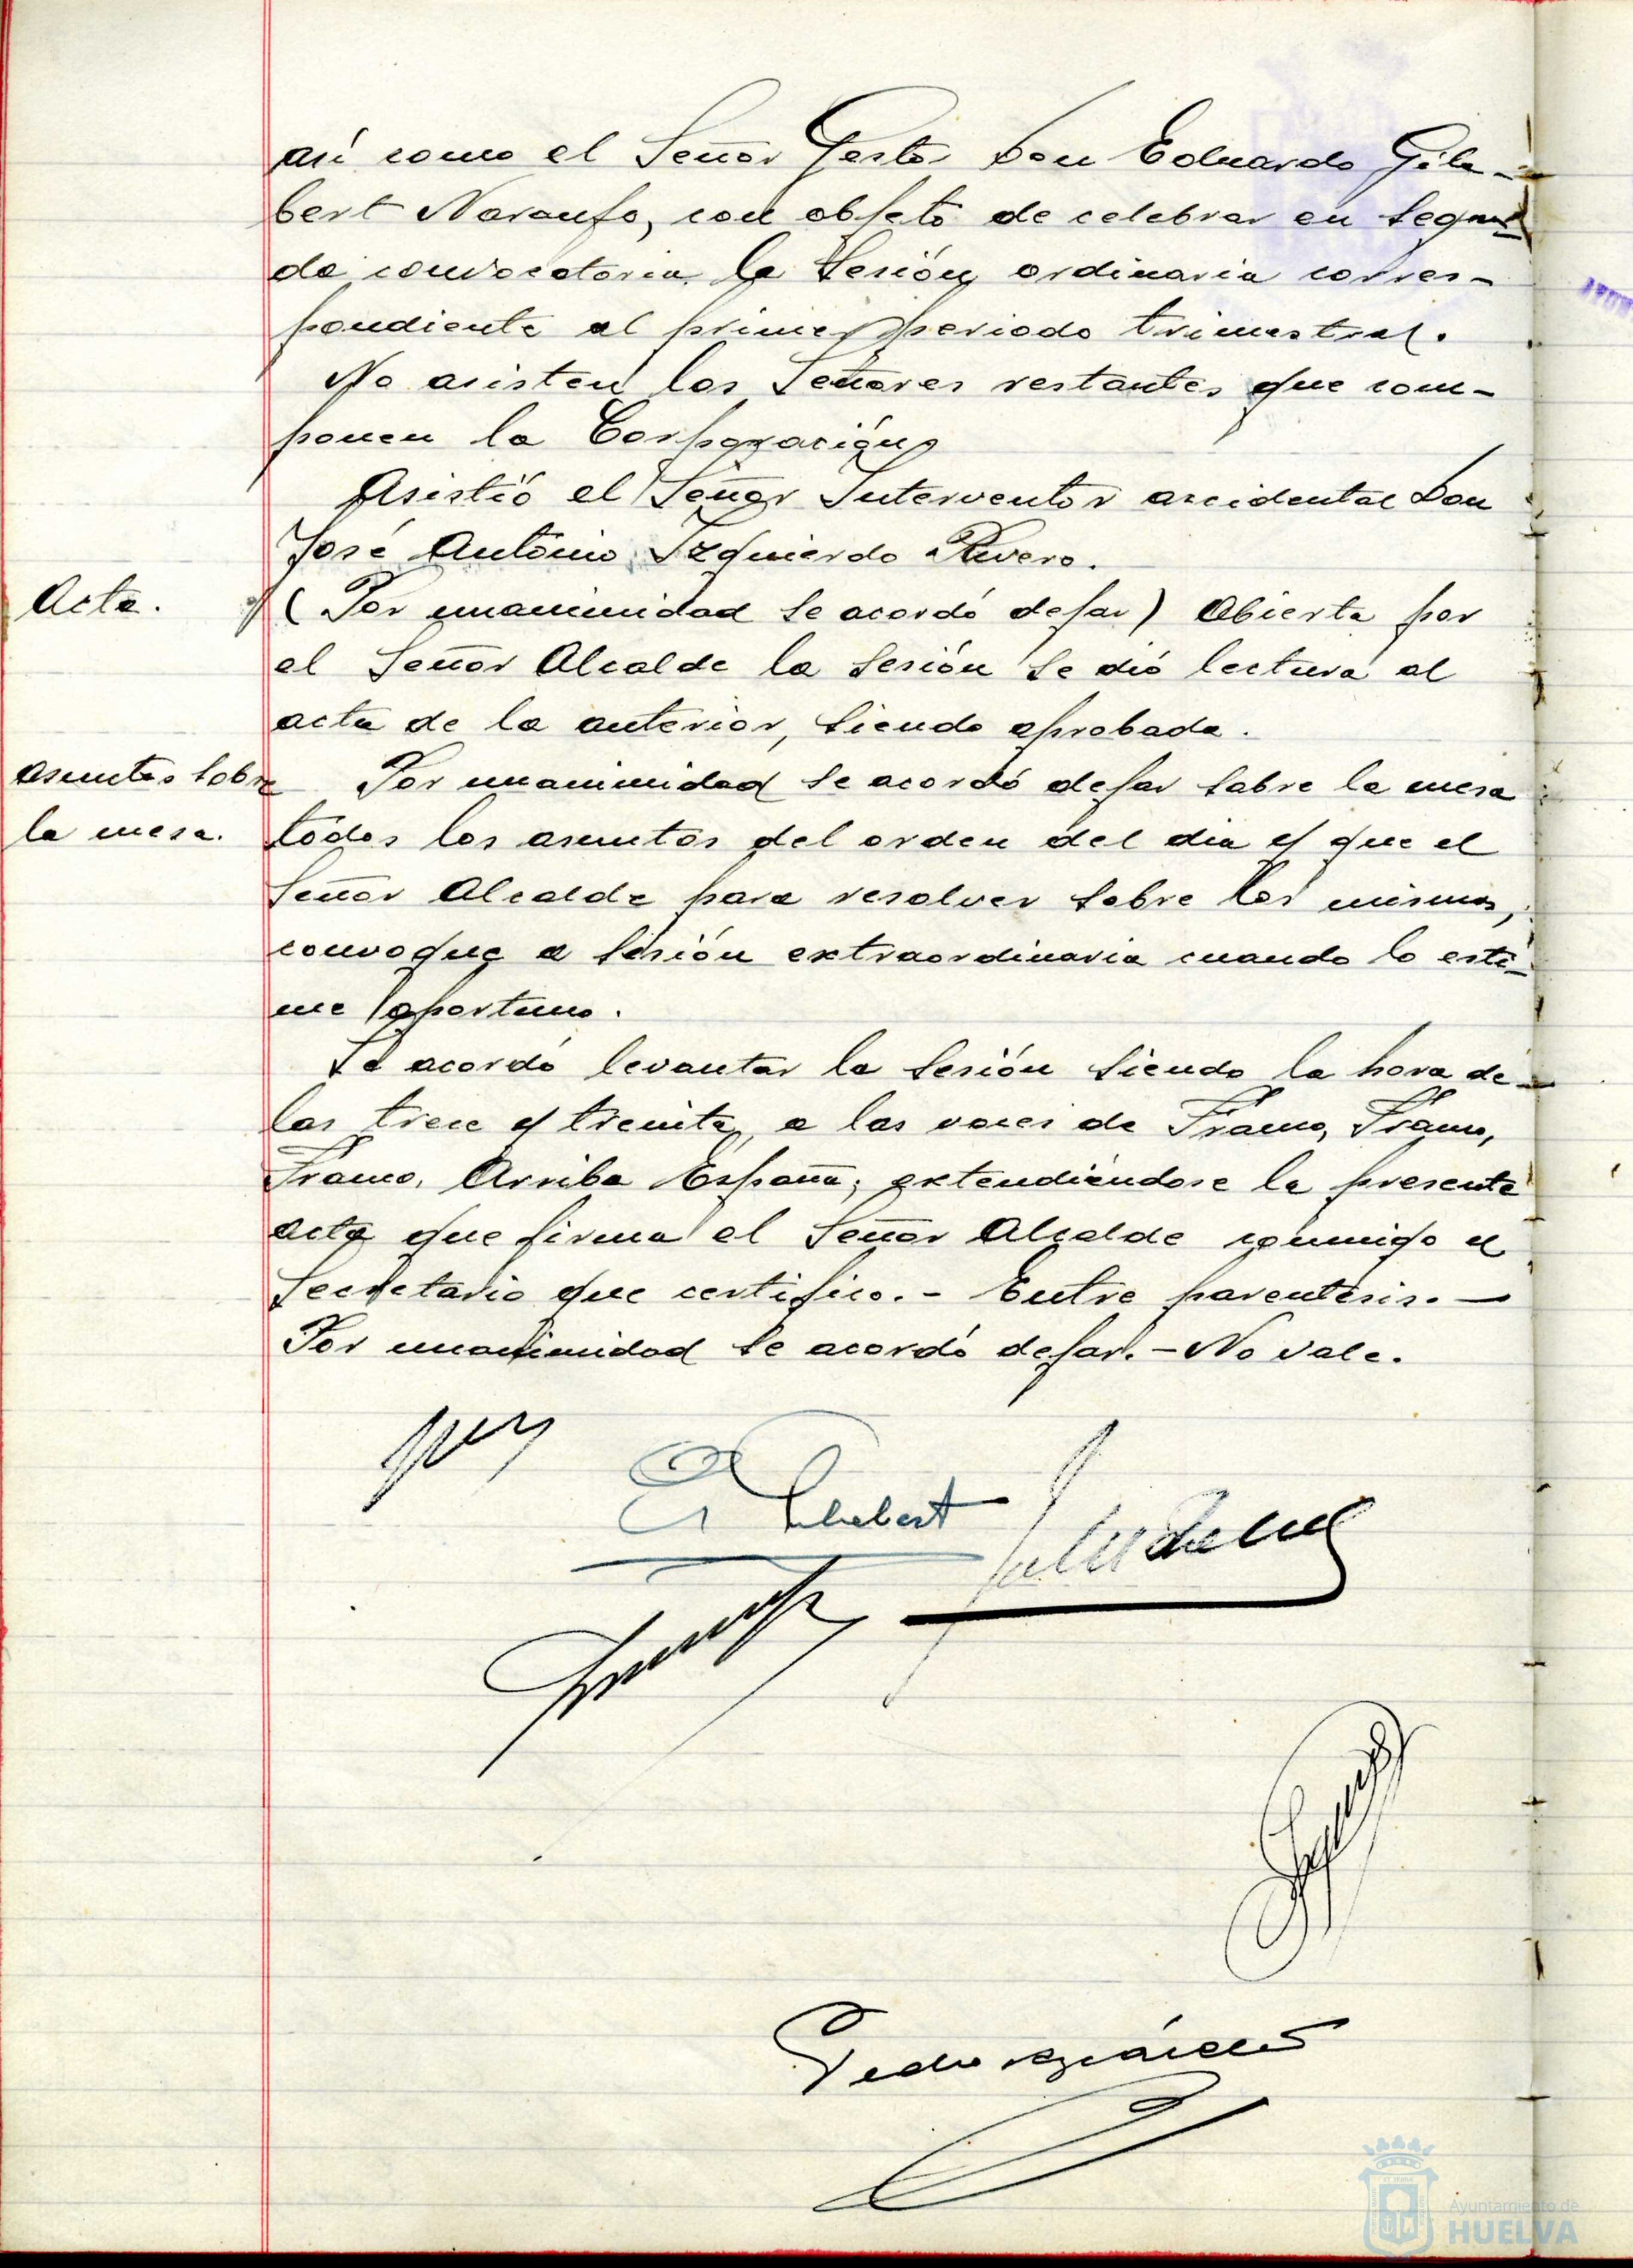 así como el Señor Gestor Don Eduardo Gila-
bert Naranjo, con objeto de celebrar en segun-
da convocatoria, la sesión ordinaria corres-
pondiente al primer periodo trimestral.
No asisten los Señores restantes que com-
ponen la Corporación,
Asistió el Señor Interventor accidental Don
José Antonio Izquierdo Rivero.
Acta. (Por unanimidad se acordó dejar) Abierta por
el Señor Alcalde la sesión se dió lectura al
acta de la anterior, siendo aprobada.
asuntos sobre Por unanimidad se acordó dejar sobre la mesa
la mesa. todos los asuntos del orden del dia y que el
Señor Alcalde para resolver sobre los mismos,
convoque a sesión extraordinaria cuando lo esti-
me oportuno.
Se acordó levantar la sesión siendo la hora de
las trece y treinta, a las voces de Franco, Franco,
Franco, Arriba España; extendiéndose la presente
acta que firma el Señor Alcalde conmigo el
Secretario que certifico. - Entre parentesis. —
Por unanimidad se acordó dejar. - No vale.
Gilabert
Pedro
Ayuntamiento de
HUELVA